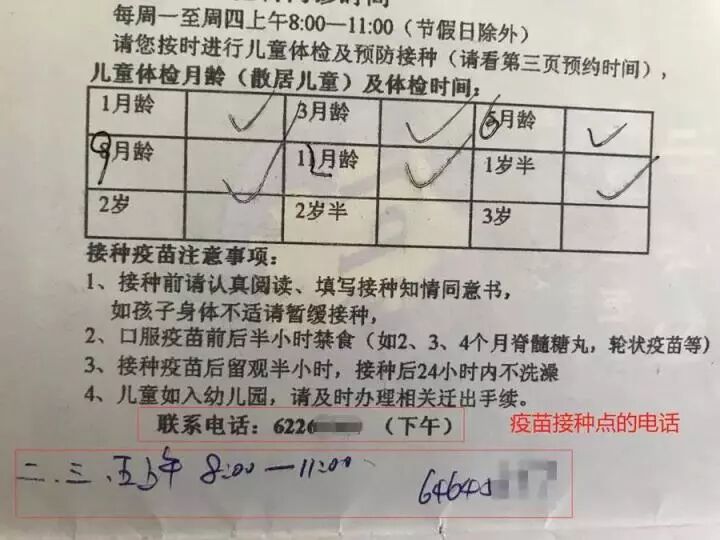 每周一至周四上午8:00—11:00（节假日除外）
请您按时进行儿童体检及预防接种（请看第三页预约时间），
儿童体检月龄（散居儿童）及体检时间：
1月龄 ✓ 3月龄 ✓ 6月龄 ✓
9月龄 ✓ 12月龄 ✓ 1岁半 ✓
2岁 2岁半 3岁
接种疫苗注意事项：
1、接种前请认真阅读、填写接种知情同意书，
如孩子身体不适请暂缓接种，
2、口服疫苗前后半小时禁食（如2、3、4个月脊髓糖丸，轮状疫苗等）
3、接种疫苗后留观半小时，接种后24小时内不洗澡
4、儿童如入幼儿园，请及时办理相关迁出手续。
联系电话：6226 （下午） 疫苗接种点的电话
二.三.五上午 8:00—11:00
6464